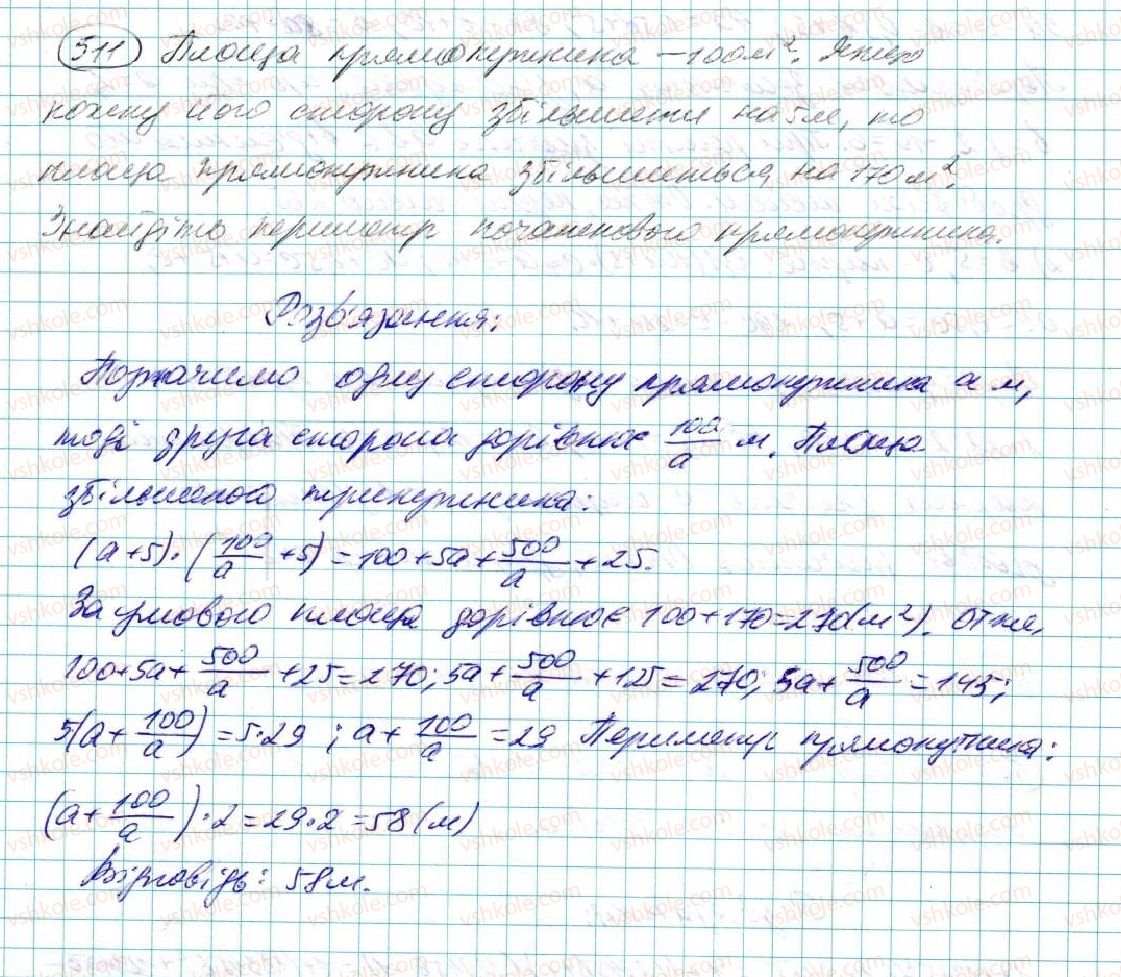 511 Площа прямокутника – 100 м². Якщо
кожну його сторону збільшити на 5 м, то
площа прямокутника збільшиться на 170 м².
Знайдіть периметр початкового прямокутника.
Розв'язання:
Позначимо одну сторону прямокутника a м,
тоді друга сторона дорівнює 100/a м. Площа
збільшеного прямокутника:
(a+5)·(100/a+5)=100+5a+500/a+25.
За умовою площа дорівнює 100+170=270(м²). Отже,
100+5a+500/a+25=270; 5a+500/a+125=270; 5a+500/a=145;
5(a+100/a)=5·29; a+100/a=29 Периметр прямокутника:
(a+100/a)·2=29·2=58(м)
Відповідь: 58 м.
vshkole.com